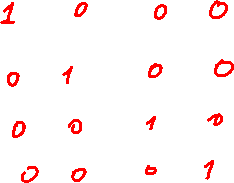 1 0 0 0
0 1 0 0
0 0 1 0
0 0 0 1